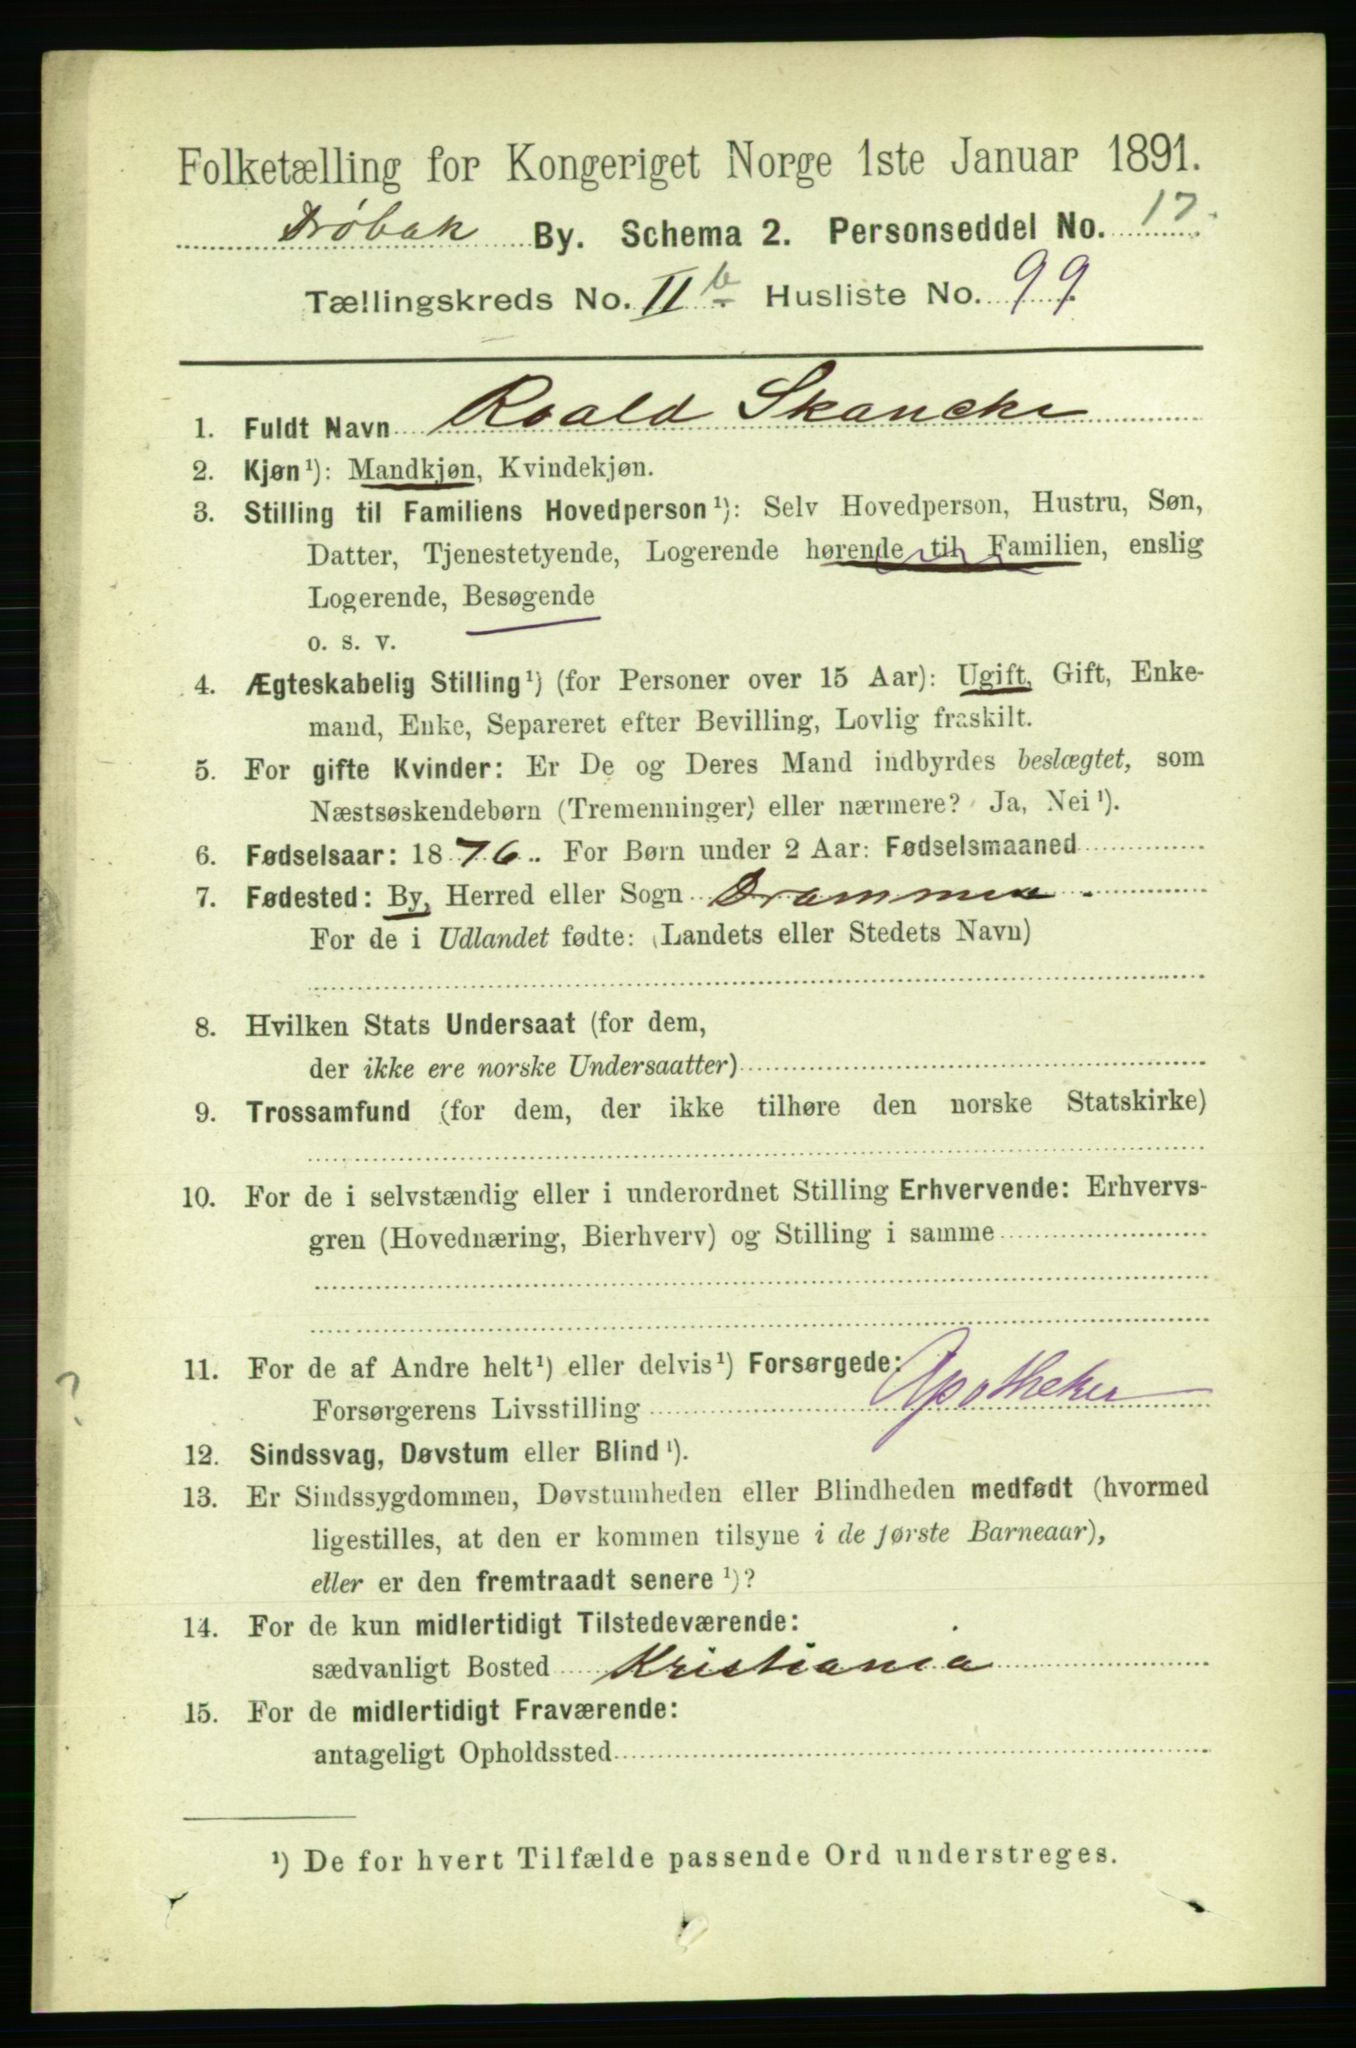 Folketælling for Kongeriget Norge 1ste Januar 1891.
Drøbak By. Schema 2. Personseddel No. 17.
Tællingskreds No. IIb Husliste No. 99
1. Fuldt Navn Roald Skancke
2. Kjøn¹): Mandkjøn, Kvindekjøn.
3. Stilling til Familiens Hovedperson¹): Selv Hovedperson, Hustru, Søn,
Datter, Tjenestetyende, Logerende hørende til Familien, enslig
Logerende, Besøgende
o. s. v.
4. Ægteskabelig Stilling¹) (for Personer over 15 Aar): Ugift, Gift, Enke-
mand, Enke, Separeret efter Bevilling, Lovlig fraskilt.
5. For gifte Kvinder: Er De og Deres Mand indbyrdes beslægtet, som
Næstsøskendebørn (Tremenninger) eller nærmere? Ja, Nei¹).
6. Fødselsaar: 1876. For Børn under 2 Aar: Fødselsmaaned
7. Fødested: By, Herred eller Sogn Drammen
For de i Udlandet fødte: (Landets eller Stedets Navn)
8. Hvilken Stats Undersaat (for dem,
der ikke ere norske Undersaatter)
9. Trossamfund (for dem, der ikke tilhøre den norske Statskirke)
10. For de i selvstændig eller i underordnet Stilling Erhvervende: Erhvervs-
gren (Hovednæring, Bierhverv) og Stilling i samme
11. For de af Andre helt¹) eller delvis¹) Forsørgede:
Forsørgerens Livsstilling Apotheker
?
12. Sindssvag, Døvstum eller Blind¹).
13. Er Sindssygdommen, Døvstumheden eller Blindheden medfødt (hvormed
ligestilles, at den er kommen tilsyne i de første Barneaar),
eller er den fremtraadt senere¹)?
14. For de kun midlertidigt Tilstedeværende:
sædvanligt Bosted Kristiania
15. For de midlertidigt Fraværende:
antageligt Opholdssted
¹) De for hvert Tilfælde passende Ord understreges.